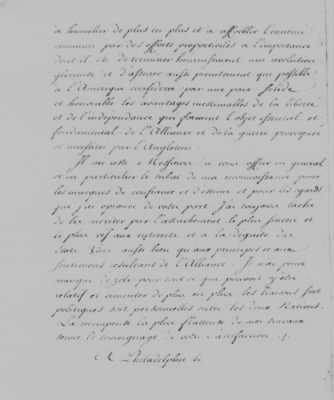 à humilier de plus en plus et à affoiblir l'ennemi
commun par des efforts proportionnés à l'importance
dont il est de terminer heureusement une révolution
glorieuse et d'assurer aussi promtement que possible
à l'Amérique confédérée par une paix solide
et honorable les avantages inestimables de la liberté
et de l'indépendance qui forment l'objet essentiel et
fondamental de l'Alliance et de la guerre provoquée
et nécessitée par l'Angleterre.
Il me reste à Messieurs, à vous offrir en général
et en particulier le tribut de ma reconnoissance pour
les marques de confiance et d'estime et pour les égards
que j'ai éprouvé de votre part. J'ai toujours taché
de les mériter par l'attachement le plus sincere et
le plus vif aux interets et à la dignité des
Etats Unis aussi bien qu'aux principes et aux
sentimens résultant de l'Alliance. Je n'ai pas
manqué de zèle pour tout ce qui pouvoit y être
relatif et cimenter de plus en plus les liaisons soit
politiques soit personnelles entre les deux Nations.
La récompense la plus flatteuse de mes travaux
seroit le témoignage de votre satisfaction.
A Philadelphie le